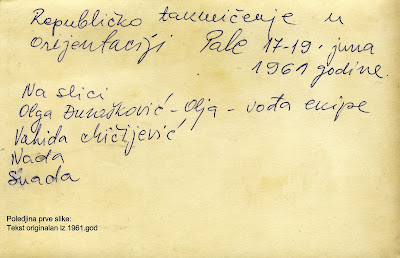 Republičko takmičenje u
orijentaciji Pale 17-19. juna
1961 godine.
Na slici
Olga Durašković - Olja - vođa ekipe
Vahida Mičijević
Nada
Snada
Poledjina prve slike:
Tekst originalan iz 1961.god